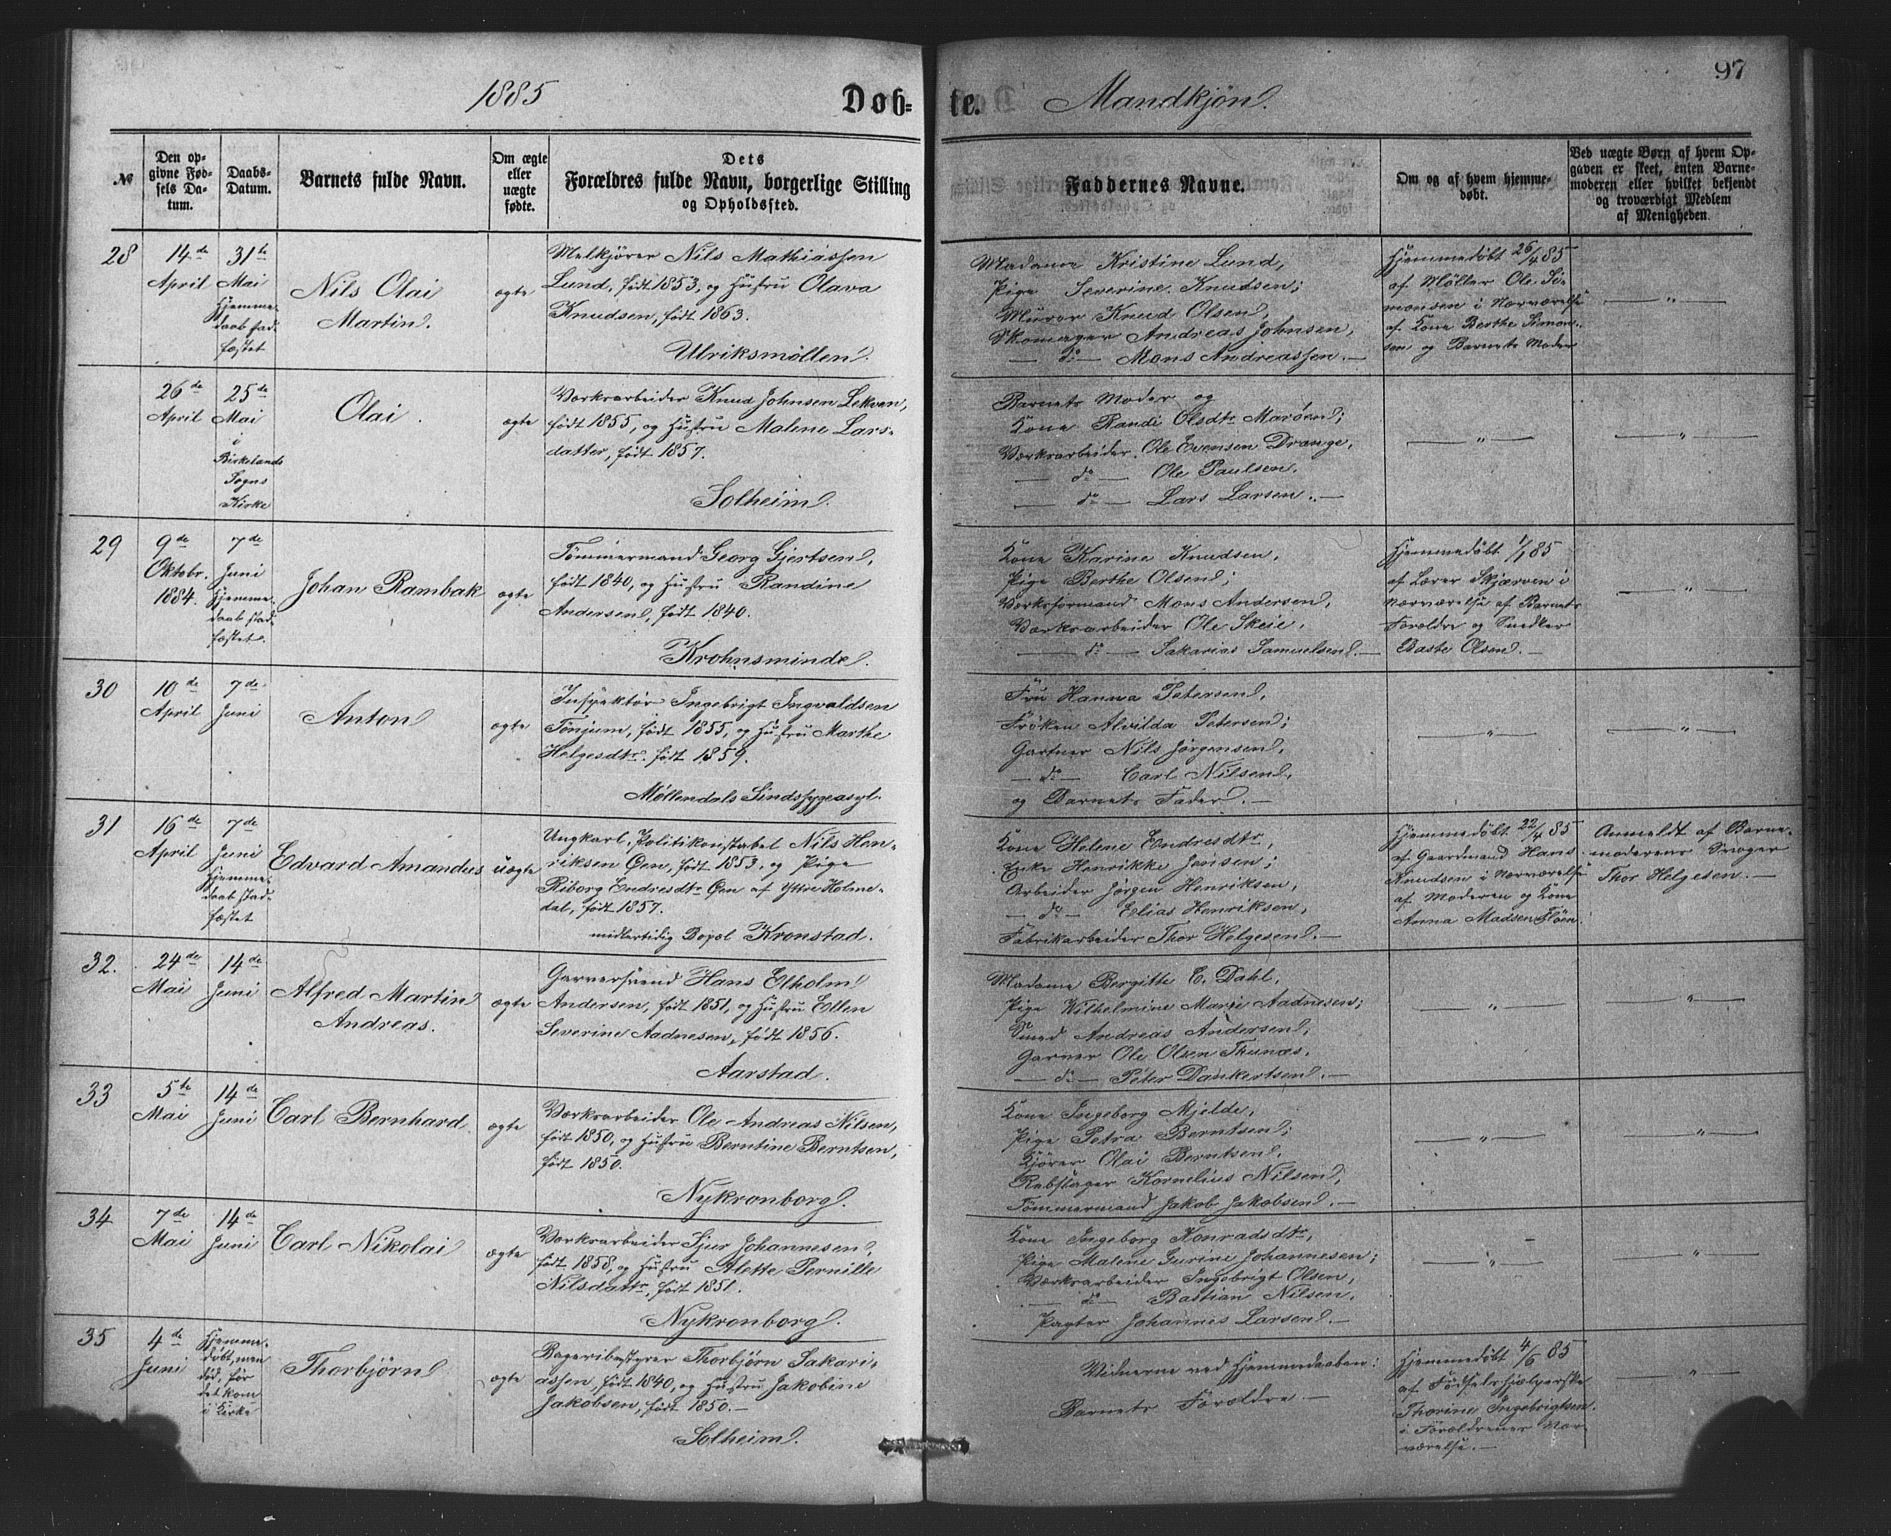 1885
Døb-
te.
Mandkjøn.
97
№
Den op-
givne Fød-
sels Da-
tum.
Daabs-
Datum.
Barnets fulde Navn.
Om ægte
eller
uægte
fødte.
Dets
Forældres fulde Navn, borgerlige Stilling
og Opholdssted.
Faddernes Navne.
Om og af hvem hjemme-
døbt.
Ved uægte Børn af hvem Op-
gaven er skeet, enten Barne-
moderen eller hvilket bekjendt
og troværdigt Medlem
af Menigheden.
28
14de
April
31te
Mai
Hjemme-
daab stad-
fæstet
Nils Olai
Martin.
ægte
Melkjører Nils Mathiassen
Lund, født 1853, og Hustru Olava
Knudsen, født 1863.
Ulriksmøllen.
Madame Kristine Lund,
Pige Severine Knudsen;
Murer Knud Olsen,
Skomager Andreas Johnsen,
— do — Mons Andreassen. —
Hjemmedøbt 26/4 85
af Møller Ole Si-
monsen i Nærværelse
af Kone Berthe Simon-
sen og Barnets Moder
— „ —
26de
April
25de
Mai
i
Birkelands
Sogns
Kirke
Olai.
ægte
Værksarbeider Knud Johnsen Lekven,
født 1855, og Hustru Malene Lars-
datter, født 1857.
Solheim.
Barnets Moder og
Kone Randi Olsdtr Marøen;
Værksarbeider Ole Evensen Drange,
— do — Ole Paulsen,
— do — Lars Larsen. —
— „ —
— „ —
29
9de
Oktobr.
1884.
7de
Juni
Hjemme-
daab stad-
fæstet.
Johan Rambak
ægte
Tømmermand Georg Gjertsen,
født 1840, og Hustru Randine
Andersen, født 1840.
Krohnsminde.
Kone Karine Knudsen,
Pige Berthe Olsen;
Værksformand Mons Andersen,
Værksarbeider Ole Skeie,
— do — Sakarias Samuelsen. —
Hjemmedøbt 1/1 85
af Lærer Skjerven i
Nærværelse af Barnets
Forældre og Snedker
Baste Olsen. —
— „ —
30
10de
April
7de
Juni
Anton
ægte
Inspektør Ingebrigt Ingvaldsen
Tønjum, født 1855, og Hustru Marthe
Helgesdtr. født 1859.
Møllendals Sindssygeasyl.
Fru Hanna Petersen,
Frøken Alvilda Petersen;
Gartner Nils Jørgensen,
— do — Carl Nilsen,
og Barnets Fader. —
— „ —
— „ —
31
16de
April
7de
Juni
Hjemme-
daab stad-
fæstet
Edvard Amandus
uægte
Ungkarl, Politikonstabel Nils Hen-
riksen Øen, født 1853, og Pige
Riborg Endresdtr Øen af Yttre Holme-
dal, født 1857.
midlertidig Bopæl Kronstad.
Kone Helene Endresdtr,
Enke Henrikke Jensen;
Arbeider Jørgen Henriksen,
— do — Elias Henriksen,
Fabrikarbeider Thor Helgesen. —
Hjemmedøbt 22/4 85
af Gaardmand Hans
Knudsen i Nærværelse
af Moderen og Kone
Anna Madsen Fløen.
Anmeldt af Barne-
moderens Svoger
Thor Helgesen. —
32.
24de
Mai
14de
Juni
Alfred Martin
Andreas.
ægte
Garversvend Hans Elholm
Andersen, født 1851, og Hustru Ellen
Severine Aadnesen, født 1856.
Aarstad.
Madame Bergitte E. Dahl,
Pige Wilhelmine Marie Aadnesen;
Smed Andreas Andersen,
Garver Ole Olsen Thunæs,
— do — Peter Dankertsen. —
— „ —
— „ —
33
5te
Mai
14de
Juni
Carl Bernhard
ægte
Værksarbeider Ole Andreas Nilsen,
født 1850, og Hustru Berntine Berntsen,
født 1850.
Nykronborg.
Kone Ingeborg Mjelde,
Pige Petra Berntsen;
Kjører Olai Berntsen,
Rebslager Kornelius Nilsen,
Tømmermand Jakob Jakobsen. —
— „ —
— „ —
34
7de
Mai
14de
Juni
Carl Nikolai
ægte
Værksarbeider Sjur Johannesen,
født 1858, og Hustru Alette Pernille
Nilsdattr, født 1851.
Nykronborg.
Kone Ingeborg Konradsdtr,
Pige Malene Gurine Johannesen;
Værksarbeider Ingebrigt Olsen,
— do — Bastian Nilsen,
Pagter Johannes Larsen. —
— „ —
— „ —
35
4de
Juni
Hjemme-
døbt, men
død, før
det kom
i Kirke
Thorbjørn
ægte
Bageribestyrer Thorbjørn Sakari-
assen, født 1840, og Hustru Jakobine
Jakobsen, født 1850. —
Solheim.
Vidnerne ved Hjemmedaaben:
Barnets Forældre. —
Hjemmedøbt 4/6 85
af Fødselshjælperske
Thorine Ingebrigtsen
i Forældrenes Nær-
værelse. —
— „ —